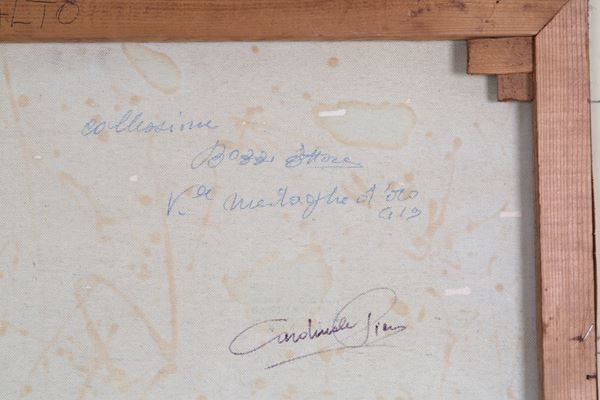 ALTO
collezione
Bozzi Ettore
V.le Medaglie d'oro
419
Cardinale Piero